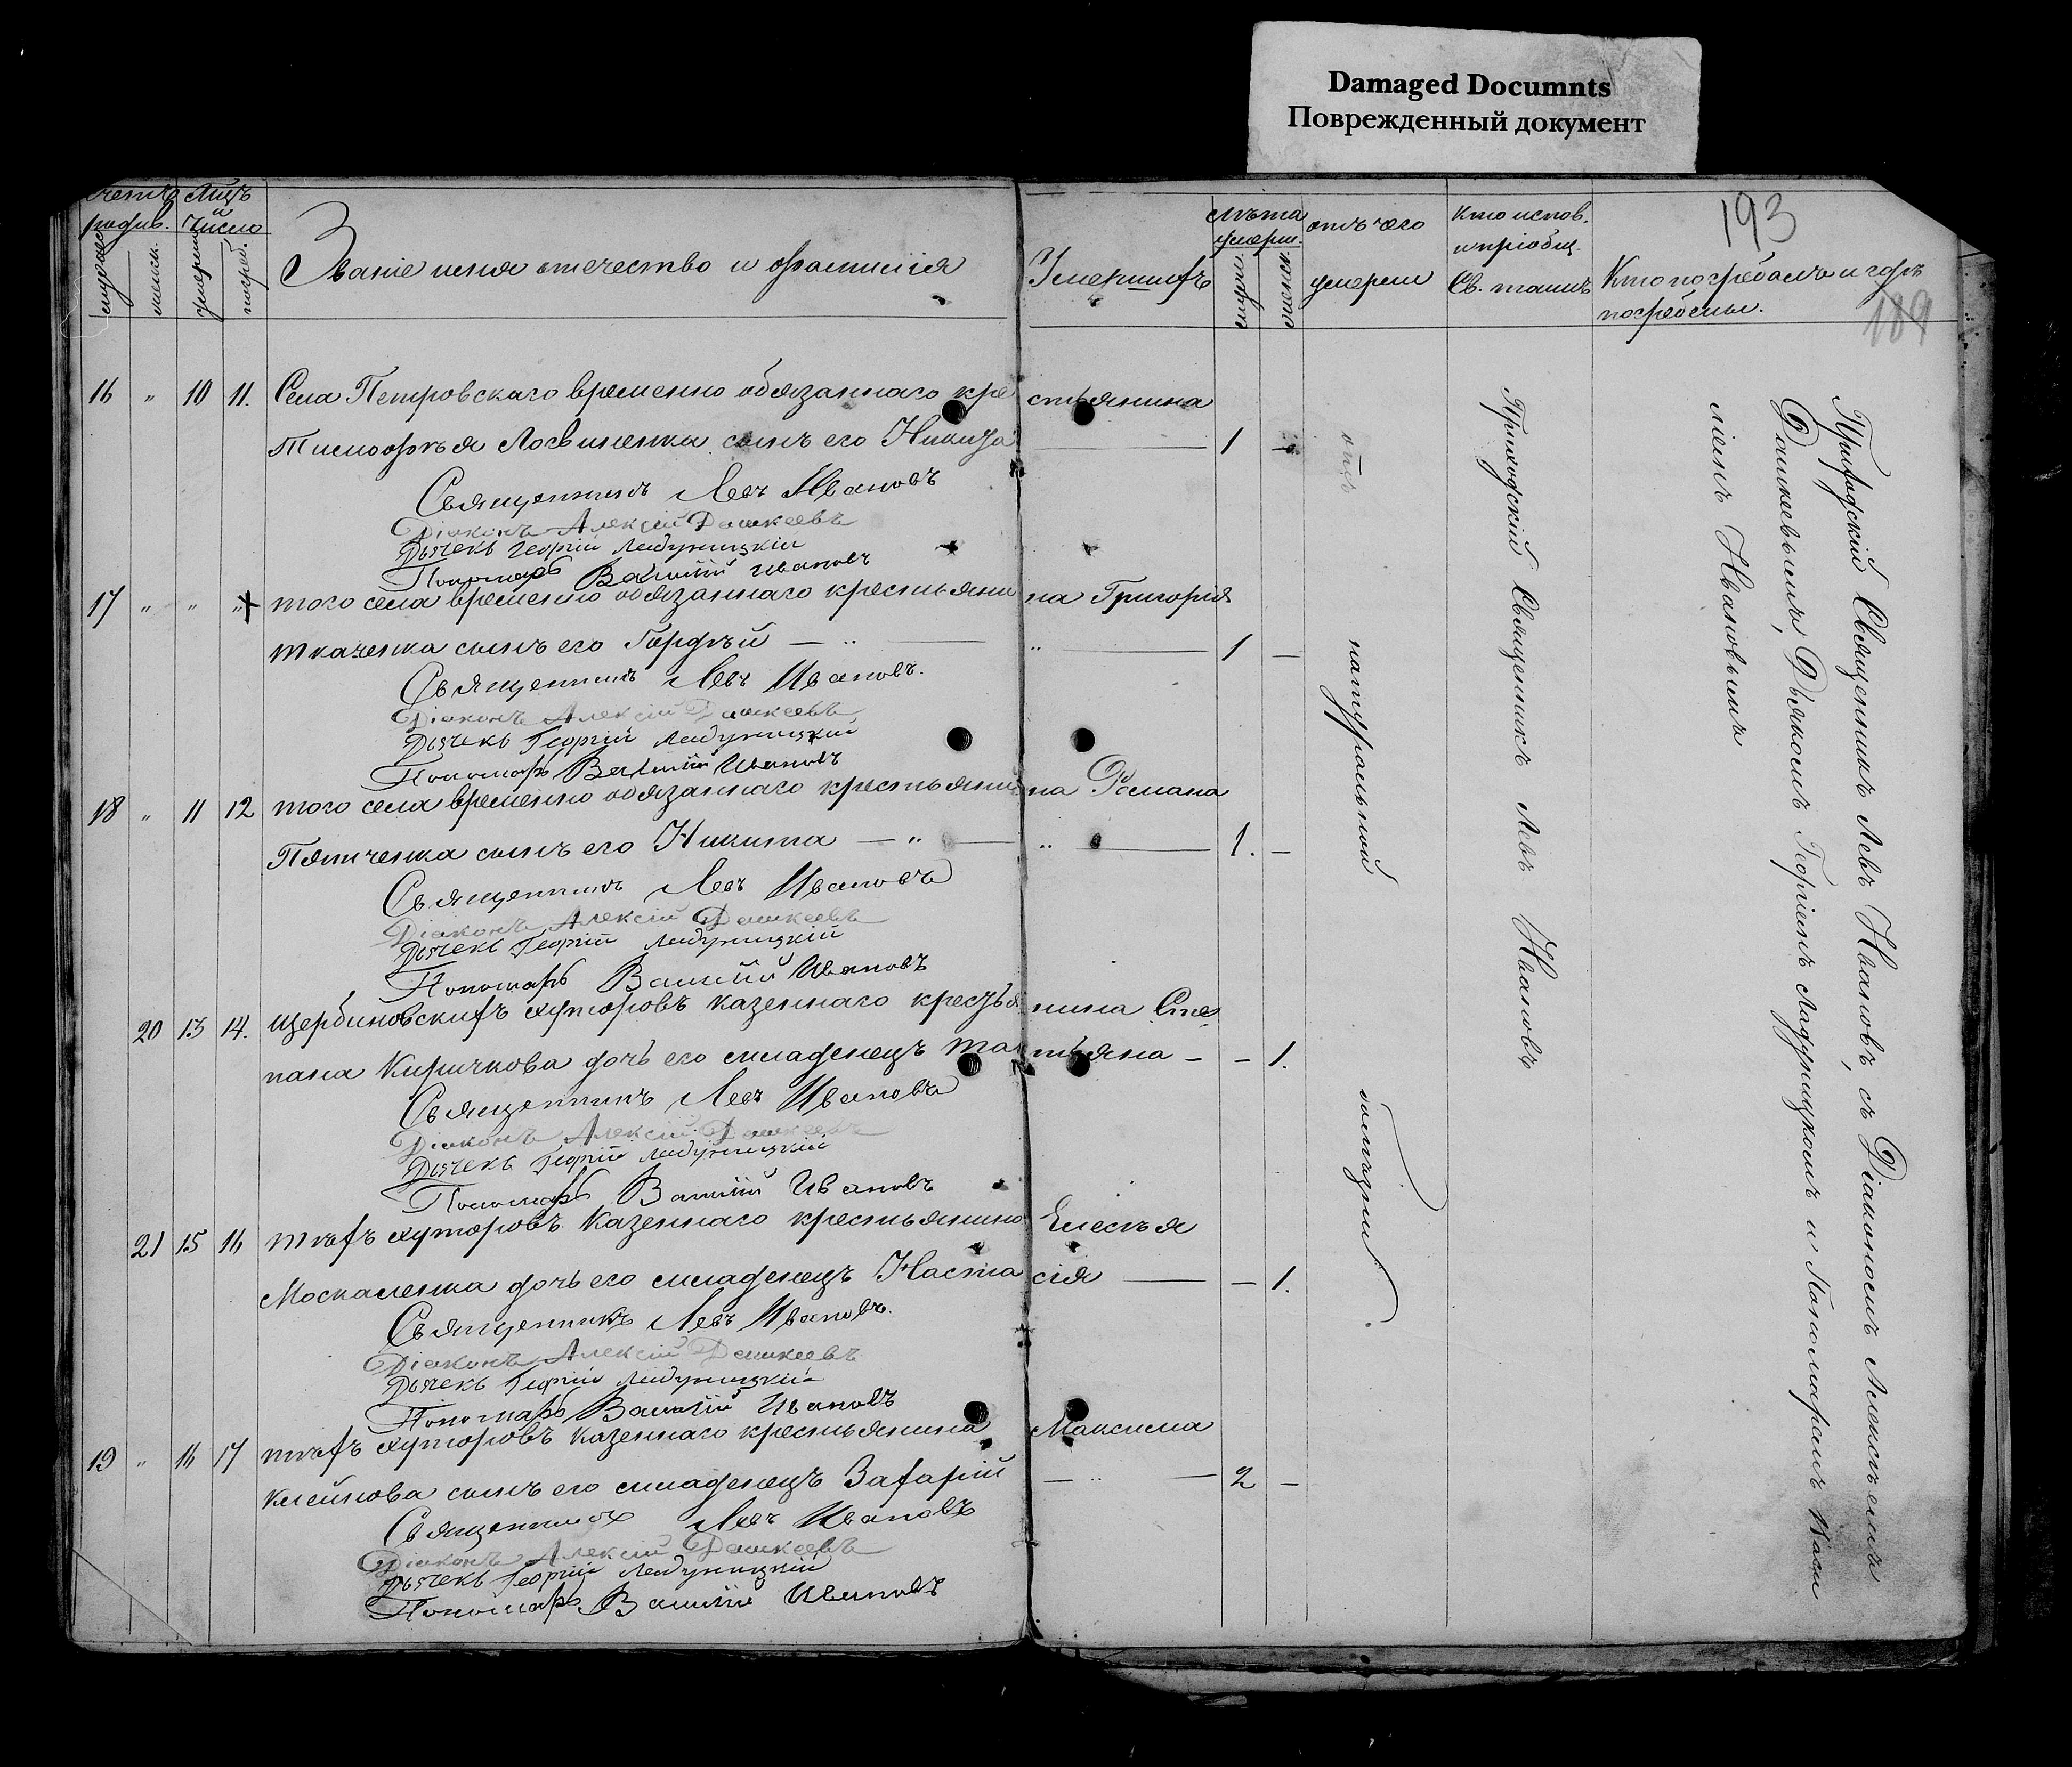 Damaged Documnts
Поврежденный документ
193
189
Званіе имя отечество и фамилія Умершихъ
лѣта умерш.
отъ чего умерли
кто испов. и пріобщ. Св. таинъ
Кто погребалъ и гдѣ погребены.
16 " 10 11. Села Петровскаго временно обязаннаго крестьянина
Тимофѣя Логвиненка сынъ его Никита 1 —
Священникъ Левъ Ивановъ
Діаконъ Алексій Дашкеевъ
Дьячекъ Георгій Ладухицкій
Пономарь Василій Ивановъ
17 " " " того села временно обязаннаго крестьянина Григорія
Ткаченка сынъ его Гордѣй — " — " — 1 —
Священникъ Левъ Ивановъ.
Діаконъ Алексій Дашкеевъ
Дьячекъ Георгій Ладухицкій
Пономарь Василій Ивановъ
18 " 11 12 того села временно обязаннаго крестьянина Романа
Пятченка сынъ его Никита — " — " — 1. —
Священникъ Левъ Ивановъ
Діаконъ Алексій Дашкеевъ
Дьячекъ Георгій Ладухицкій
Пономарь Василій Ивановъ
20 13 14. Щербиновскихъ хуторовъ казеннаго крестьянина Сте
пана Киричкова дочь его младенецъ Татьяна — — 1.
Священникъ Левъ Ивановъ
Діаконъ Алексій Дашкеевъ
Дьячекъ Георгій Ладухицкій
Пономарь Василій Ивановъ
21 15 16 тѣхъ хуторовъ казеннаго крестьянина Елесѣя
Москаленка дочь его младенецъ Настасія — — 1.
Священникъ Левъ Ивановъ.
Діаконъ Алексій Дашкеевъ
Дьячекъ Георгій Ладухицкій
Пономарь Василій Ивановъ
19 " 16 17 тѣхъ хуторовъ казеннаго крестьянина Максима
Клейнова сынъ его младенецъ Захарій — " — 2 —
Священникъ Левъ Ивановъ
Діаконъ Алексій Дашкеевъ
Дьячекъ Георгій Ладухицкій
Пономарь Василій Ивановъ
отъ натуральной болѣзни.
Приходскій Священникъ Левъ Ивановъ
Приходскій Священникъ Левъ Ивановъ, съ Діакономъ Алексѣемъ
Дашкевымъ, Дьякомъ Георгіемъ Ладухицкомъ и Паномаремъ Васи
ліемъ Ивановымъ